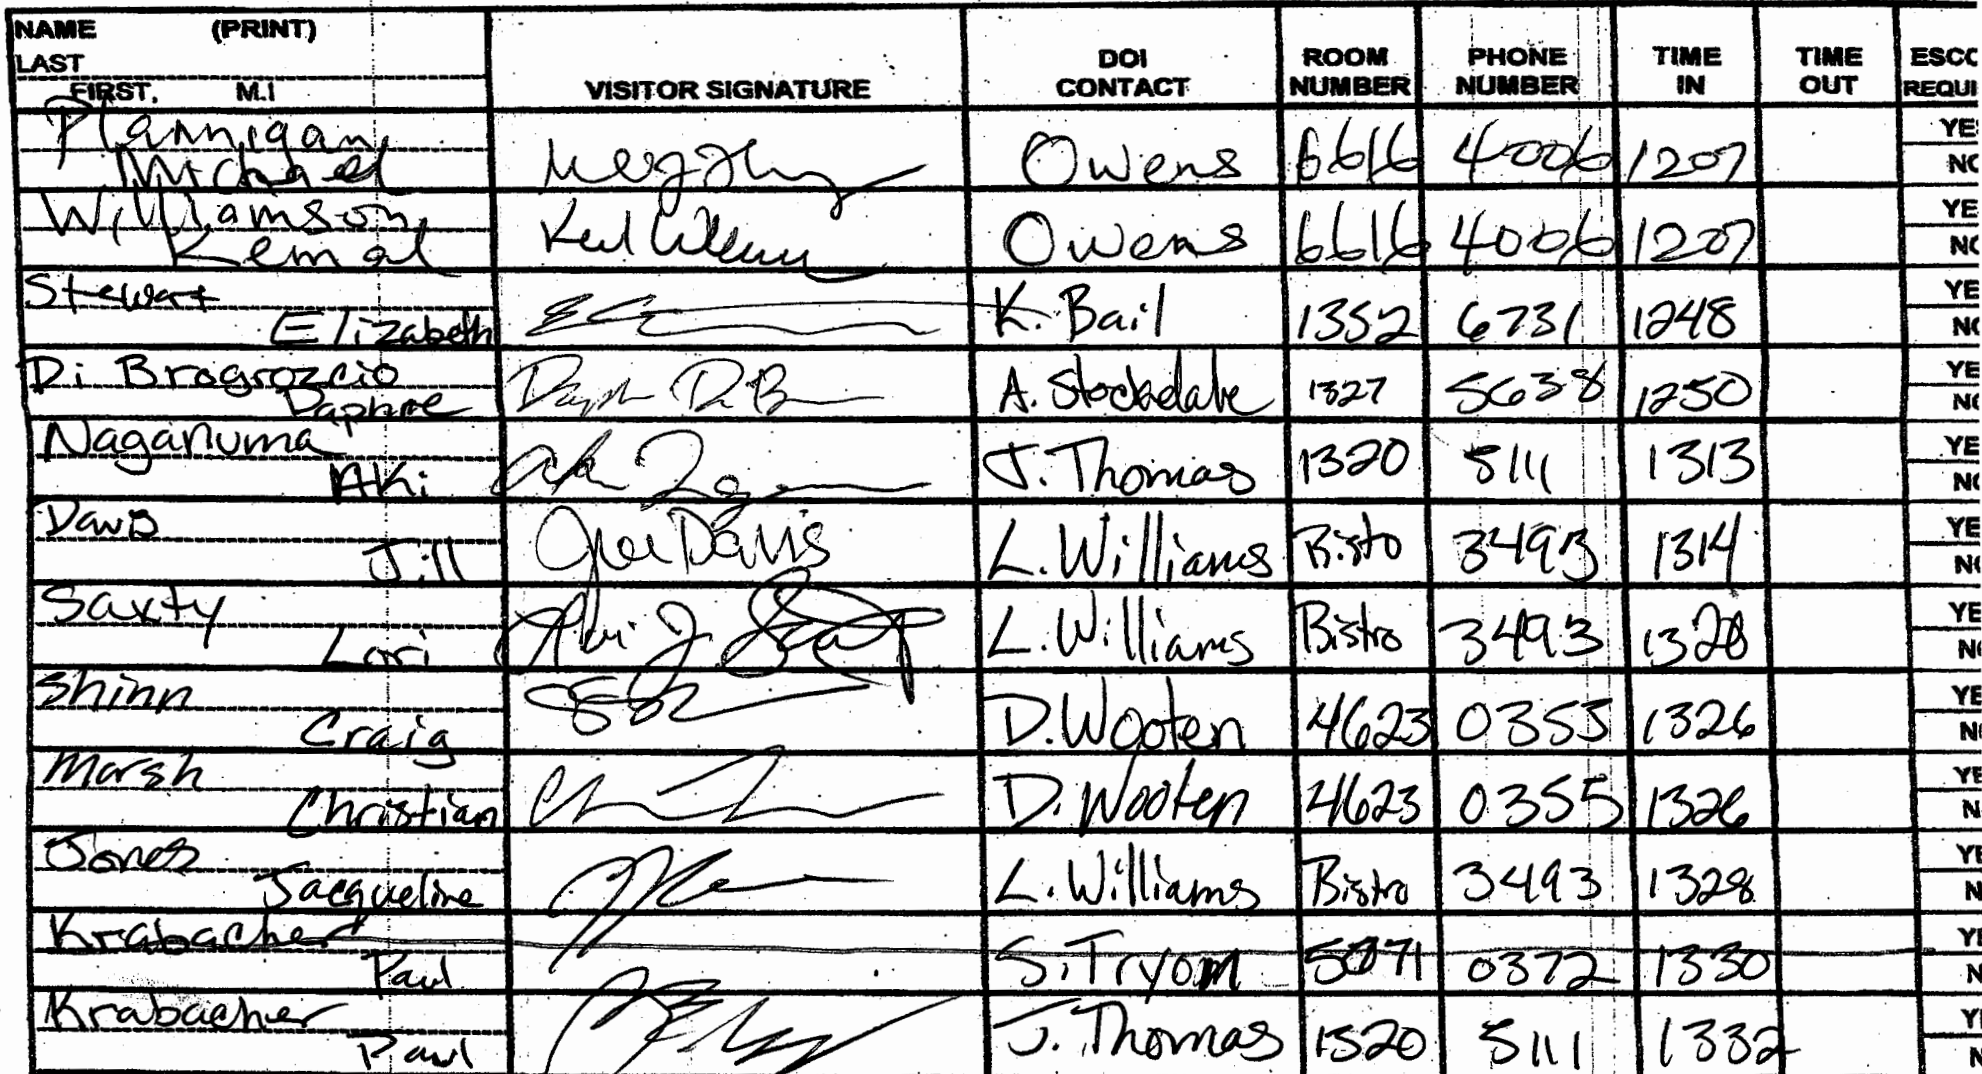 NAME (PRINT)
LAST
FIRST, M.I
VISITOR SIGNATURE
DOI CONTACT
ROOM NUMBER
PHONE NUMBER
TIME IN
TIME OUT
ESCC REQUI
Flannigan Michael Owens 6616 4006 1207 YES NO
Williamson Kemal Owens 6616 4006 1207 YE NO
Stewart Elizabeth K. Bail 1352 6731 1248 YE NO
Di Brogrozcio Daphne A. Stockdale 1327 5638 1250 YE NO
Naganuma Aki J. Thomas 1320 5111 1313 YE NO
Davis Jill Davis L. Williams Bisto 3493 1314 YE NO
Saxty Lori L. Williams Bistro 3493 1328 YE N
Shinn Craig D. Wooten 4623 0355 1326 YE N
Marsh Christian D. Wooten 4623 0355 1326 YE N
Jones Jacqueline L. Williams Bistro 3493 1328 YE N
Krabacher Paul S. Tryom 0372 1330 YE N
Krabacher Paul J. Thomas 1320 5111 1332 Y N